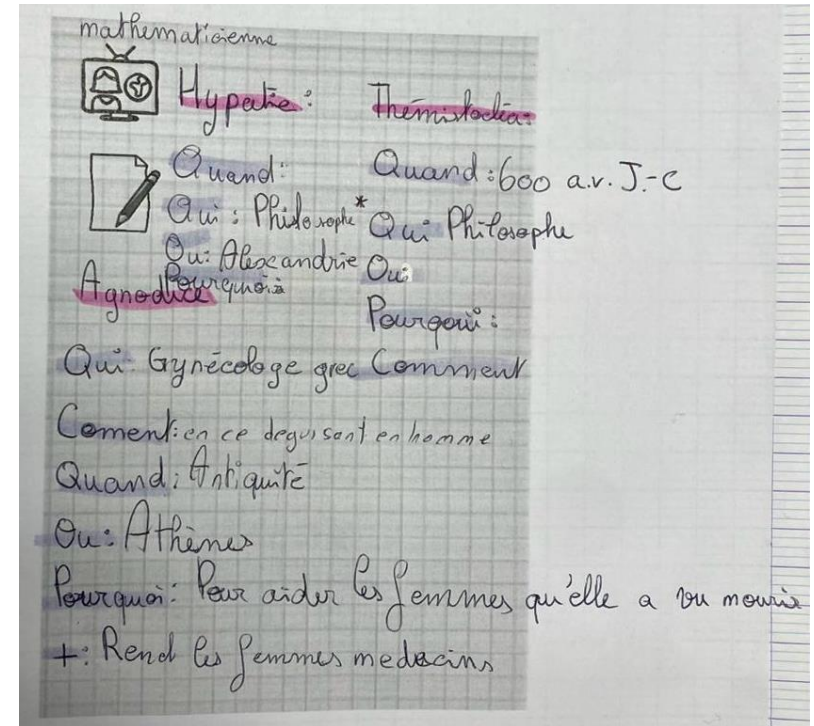 mathematicienne
Hypatie:
Quand:
Qui: Philosophe*
Ou: Alexandrie
Pourquoi:
Thémistocléa:
Quand: 600 a.v. J.-C
Qui Philosophe
Ou:
Pourqoui:
Comment
Agnodice
Qui: Gynécologe grec
Coment: en ce deguisant en homme
Quand: Antiquité
Ou: Athènes
Pourquoi: Pour aider les femmes qu'elle a vu mourir
+: Rend les femmes medecins